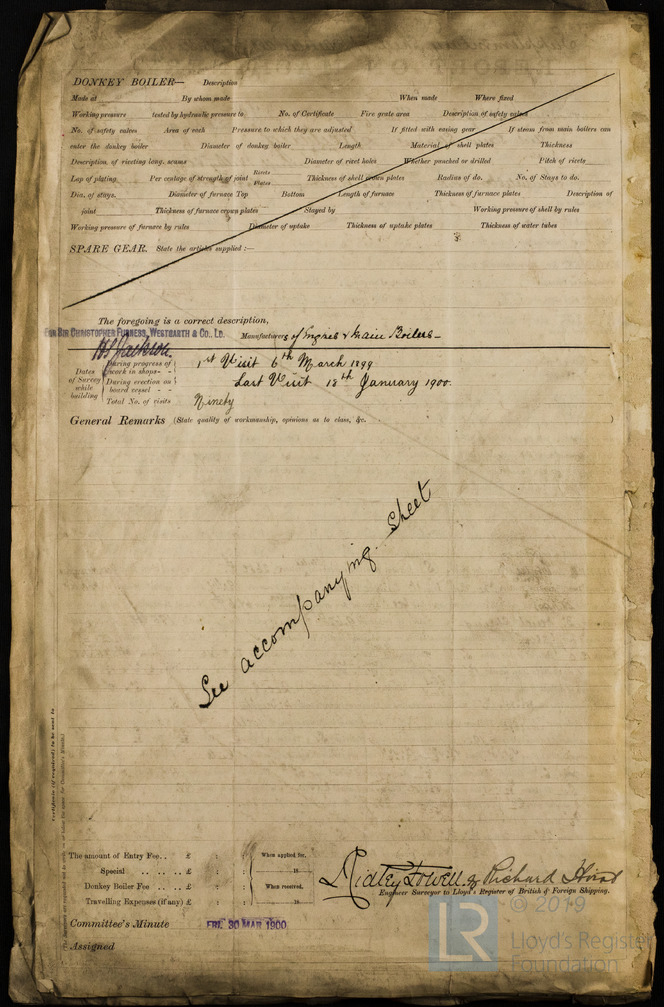 DONKEY BOILER— Description
Made at By whom made When made Where fixed
Working pressure tested by hydraulic pressure to No. of Certificate Fire grate area Description of safety valves
No. of safety valves Area of each Pressure to which they are adjusted If fitted with easing gear If steam from main boilers can
enter the donkey boiler Diameter of donkey boiler Length Material of shell plates Thickness
Description of riveting long. seams Diameter of rivet holes Whether punched or drilled Pitch of rivets
Lap of plating Per centage of strength of joint Rivets Plates Thickness of shell crown plates Radius of do. No. of Stays to do.
Dia. of stays. Diameter of furnace Top Bottom Length of furnace Thickness of furnace plates Description of
joint Thickness of furnace crown plates Stayed by Working pressure of shell by rules
Working pressure of furnace by rules Diameter of uptake Thickness of uptake plates Thickness of water tubes
SPARE GEAR. State the articles supplied :—
The foregoing is a correct description,
FOR SIR CHRISTOPHER FURNESS, WESTGARTH & CO., LD. Manufacturers of Engines & Main Boilers
Jackson
Dates of Survey while building
During progress of work in shops- - 1st Visit 6th March 1899
During erection on board vessel - - Last Visit 18th January 1900.
Total No. of visits Ninety
General Remarks (State quality of workmanship, opinions as to class, &c. )
See accompanying sheet
Certificate (if required) to be sent to
The amount of Entry Fee . . £ : : When applied for,
Special . . . . . £ : : 18
Donkey Boiler Fee . . . . £ : : When received,
Travelling Expenses (if any) £ : : 18
Ridley Howell & Richard Hirst
Engineer Surveyor to Lloyd's Register of British & Foreign Shipping.
Committee's Minute FRI. 30 MAR 1900
Assigned
LR
© 2019
Lloyd's Register
Foundation